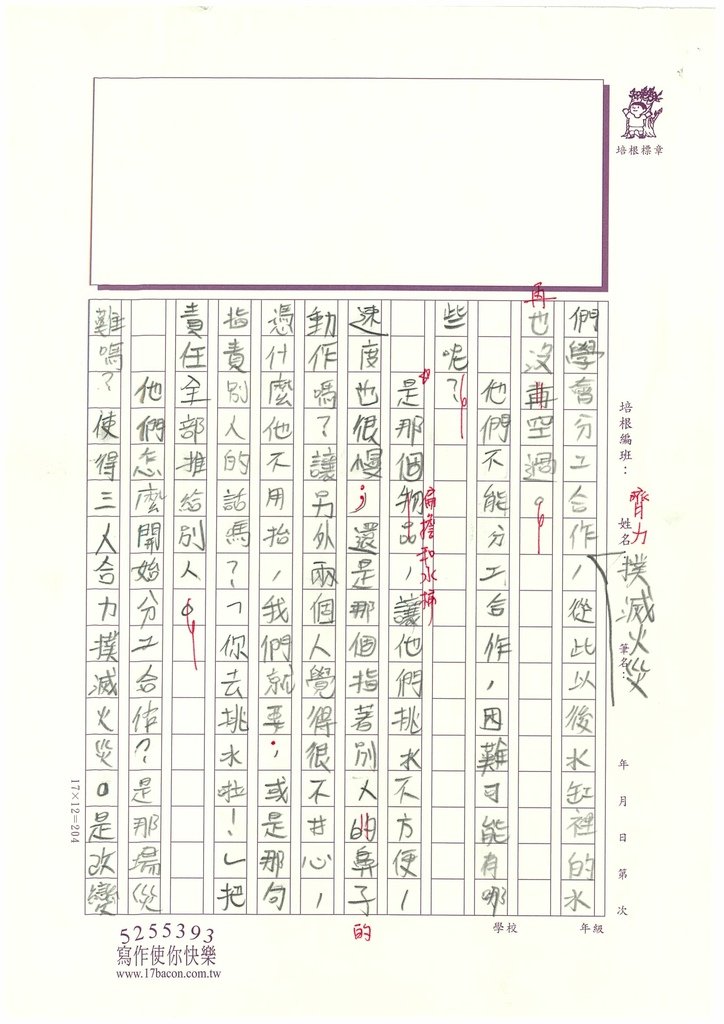 培根標章
培根編班：
姓名
筆名：
年 月 日 第 次
年級
學校
齊力撲滅火災
們學會分工合作，從此以後水缸裡的水
再
也沒再空過。
他們不能分工合作，困難可能有哪
些呢？
是那個物品，讓他們挑水不方便，
扁擔和水桶
速度也很慢；還是那個指著別人的鼻子
的
動作嗎？讓另外兩個人覺得很不甘心，
憑什麼他不用抬，我們就要；或是那句
指責別人的話嗎？「你去挑水啦！」把
責任全部推給別人。
他們怎麼開始分工合作？是那場災
難嗎？使得三人合力撲滅火災。是改變
17×12=204
5255393
寫作使你快樂
www.17bacon.com.tw